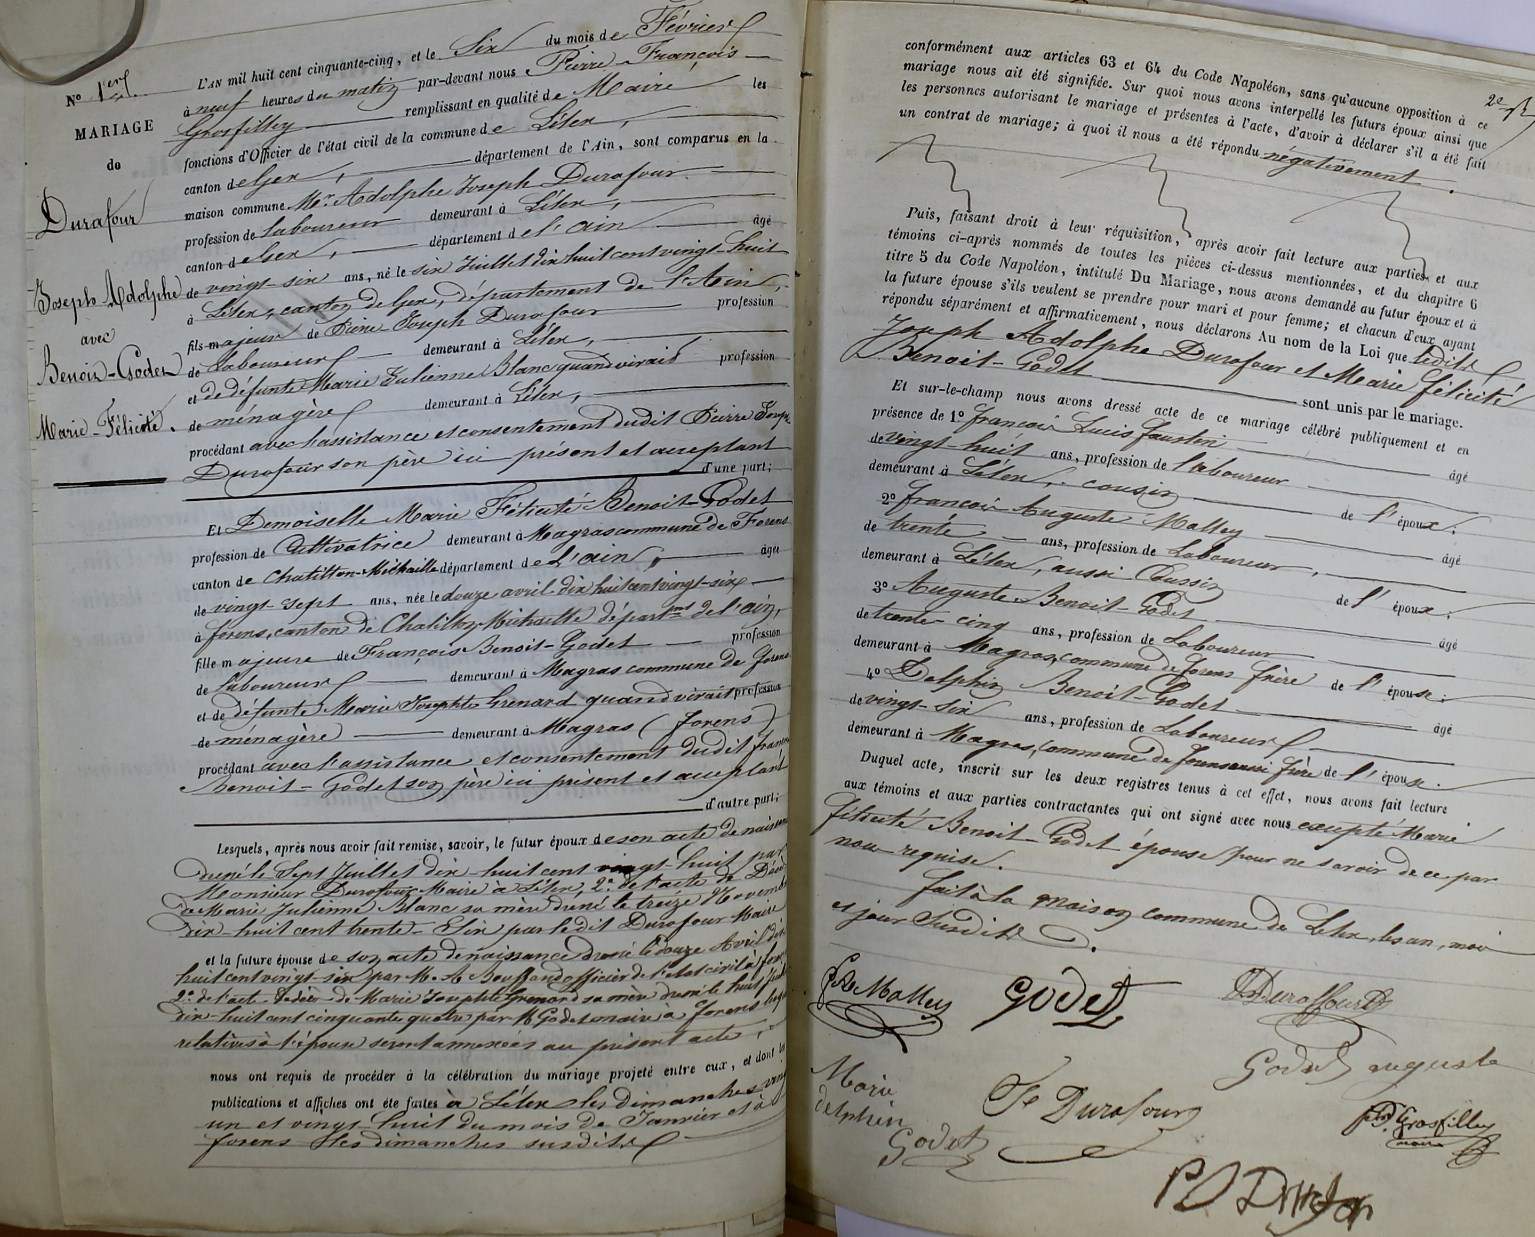 N° 1er
MARIAGE
de
Durafour
Joseph Adolphe
avec
Benoit-Godet
Marie-Félicité.
L'AN mil huit cent cinquante-cinq, et le Six du mois de Février
à neuf heures du matin par-devant nous Pierre François
Grosfilley remplissant en qualité de Maire les
fonctions d'Officier de l'état civil de la commune de Lélex,
canton de Gex, département de l'Ain, sont comparus en la
maison commune Mr. Adolphe Joseph Durafour
profession de laboureur demeurant à Lélex,
canton de Gex, département de l'ain âgé
de vingt-six ans, né le six Juillet dix huit cent vingt-huit
à Lélex, canton de Gex, département de l'Ain,
fils majeur de Pierre Joseph Durafour profession
de laboureur demeurant à Lélex,
et de défunte Marie Julienne Blanc quand vivait profession
de ménagère demeurant à Lélex,
procédant avec l'assistance et consentement dudit Pierre Joseph
Durafour son père ici présent et acceptant
d'une part;
Et Demoiselle Marie Félicité Benoit-Godet
profession de Cultivatrice demeurant à Magras commune de Forens
canton de Chatillon-Michaille département de l'ain, âgée
de vingt-sept ans, née le douze avril dix huit cent vingt-six
à forens, canton de Chatillon Michaille départmt de l'ain,
fille majeure de François Benoit-Godet profession
de laboureur demeurant à Magras commune de forens
et de défunte Marie Josephte Grenard quand vivait profession
de ménagère demeurant à Magras (forens)
procédant avec l'assistance et consentement dudit françois
Benoit-Godet son père ici présent et acceptant
d'autre part;
Lesquels, après nous avoir fait remise, savoir, le futur époux de son acte de naissance
dressé le Sept Juillet dix-huit cent vingt huit par
Monsieur Durafour Maire à Lélex, 2° de l'acte de Décès
de Marie Julienne Blanc sa mère dressé le treize Novembre
dix-huit cent trente-Six par ledit Durafour Maire
et la future épouse de son acte de naissance dressé le douze Avril dix
huit cent vingt-six par M. A Bouffand officier de l'etat civil à forens
2° de l'acte de décès de Marie Josephte Grenard sa mère dressé le huit
dix-huit cent cinquante quatre par M Godet maire à forens
relatives à l'épouse seront annexées au présent acte,
nous ont requis de procéder à la célébration du mariage projeté entre eux, et dont les
publications et affiches ont été faites à Lélex les dimanches vingt
un et vingt huit du mois de Janvier et à
forens les dimanches susdits
2e
conformément aux articles 63 et 64 du Code Napoléon, sans qu'aucune opposition à ce
mariage nous ait été signifiée. Sur quoi nous avons interpellé les futurs époux ainsi que
les personnes autorisant le mariage et présentes à l'acte, d'avoir à déclarer s'il a été fait
un contrat de mariage; à quoi il nous a été répondu négativement.
Puis, faisant droit à leur réquisition, après avoir fait lecture aux parties et aux
témoins ci-après nommés de toutes les pièces ci-dessus mentionnées, et du chapitre 6
titre 5 du Code Napoléon, intitulé Du Mariage, nous avons demandé au futur époux et à
la future épouse s'ils veulent se prendre pour mari et pour femme; et chacun d'eux ayant
répondu séparément et affirmativement, nous déclarons Au nom de la Loi que lédits
Joseph Adolphe Durafour et Marie félicité
Benoit-Godet sont unis par le mariage.
Et sur-le-champ nous avons dressé acte de ce mariage célébré publiquement et en
présence de 1° françois Louis faustin âgé
de vingt huit ans, profession de laboureur
demeurant à Lélex, cousin de l'époux.
2° françois Auguste Molley âgé
de trente ans, profession de Laboureur,
demeurant à Lélex, aussi Cousin de l'époux;
3° Auguste Benoit-Godet âgé
de trente-cinq ans, profession de Laboureur
demeurant à Magras, commune de forens frère de l'épouse;
4° Delphin Benoit-Godet âgé
de vingt-six ans, profession de Laboureur
demeurant à Magras, Commune de forens aussi frère de l'épouse.
Duquel acte, inscrit sur les deux registres tenus à cet effet, nous avons fait lecture
aux témoins et aux parties contractantes qui ont signé avec nous excepté Marie
félicité Benoit-Godet épouse pour ne savoir de ce par
nous requise.
fait à la maison commune de Lélex, les an, mois
et jour Susdits.
Molley
GODET
Duraffourd
Godet auguste
Marie
delphin
Godet
Je Durafourg
Grosfilley
maire